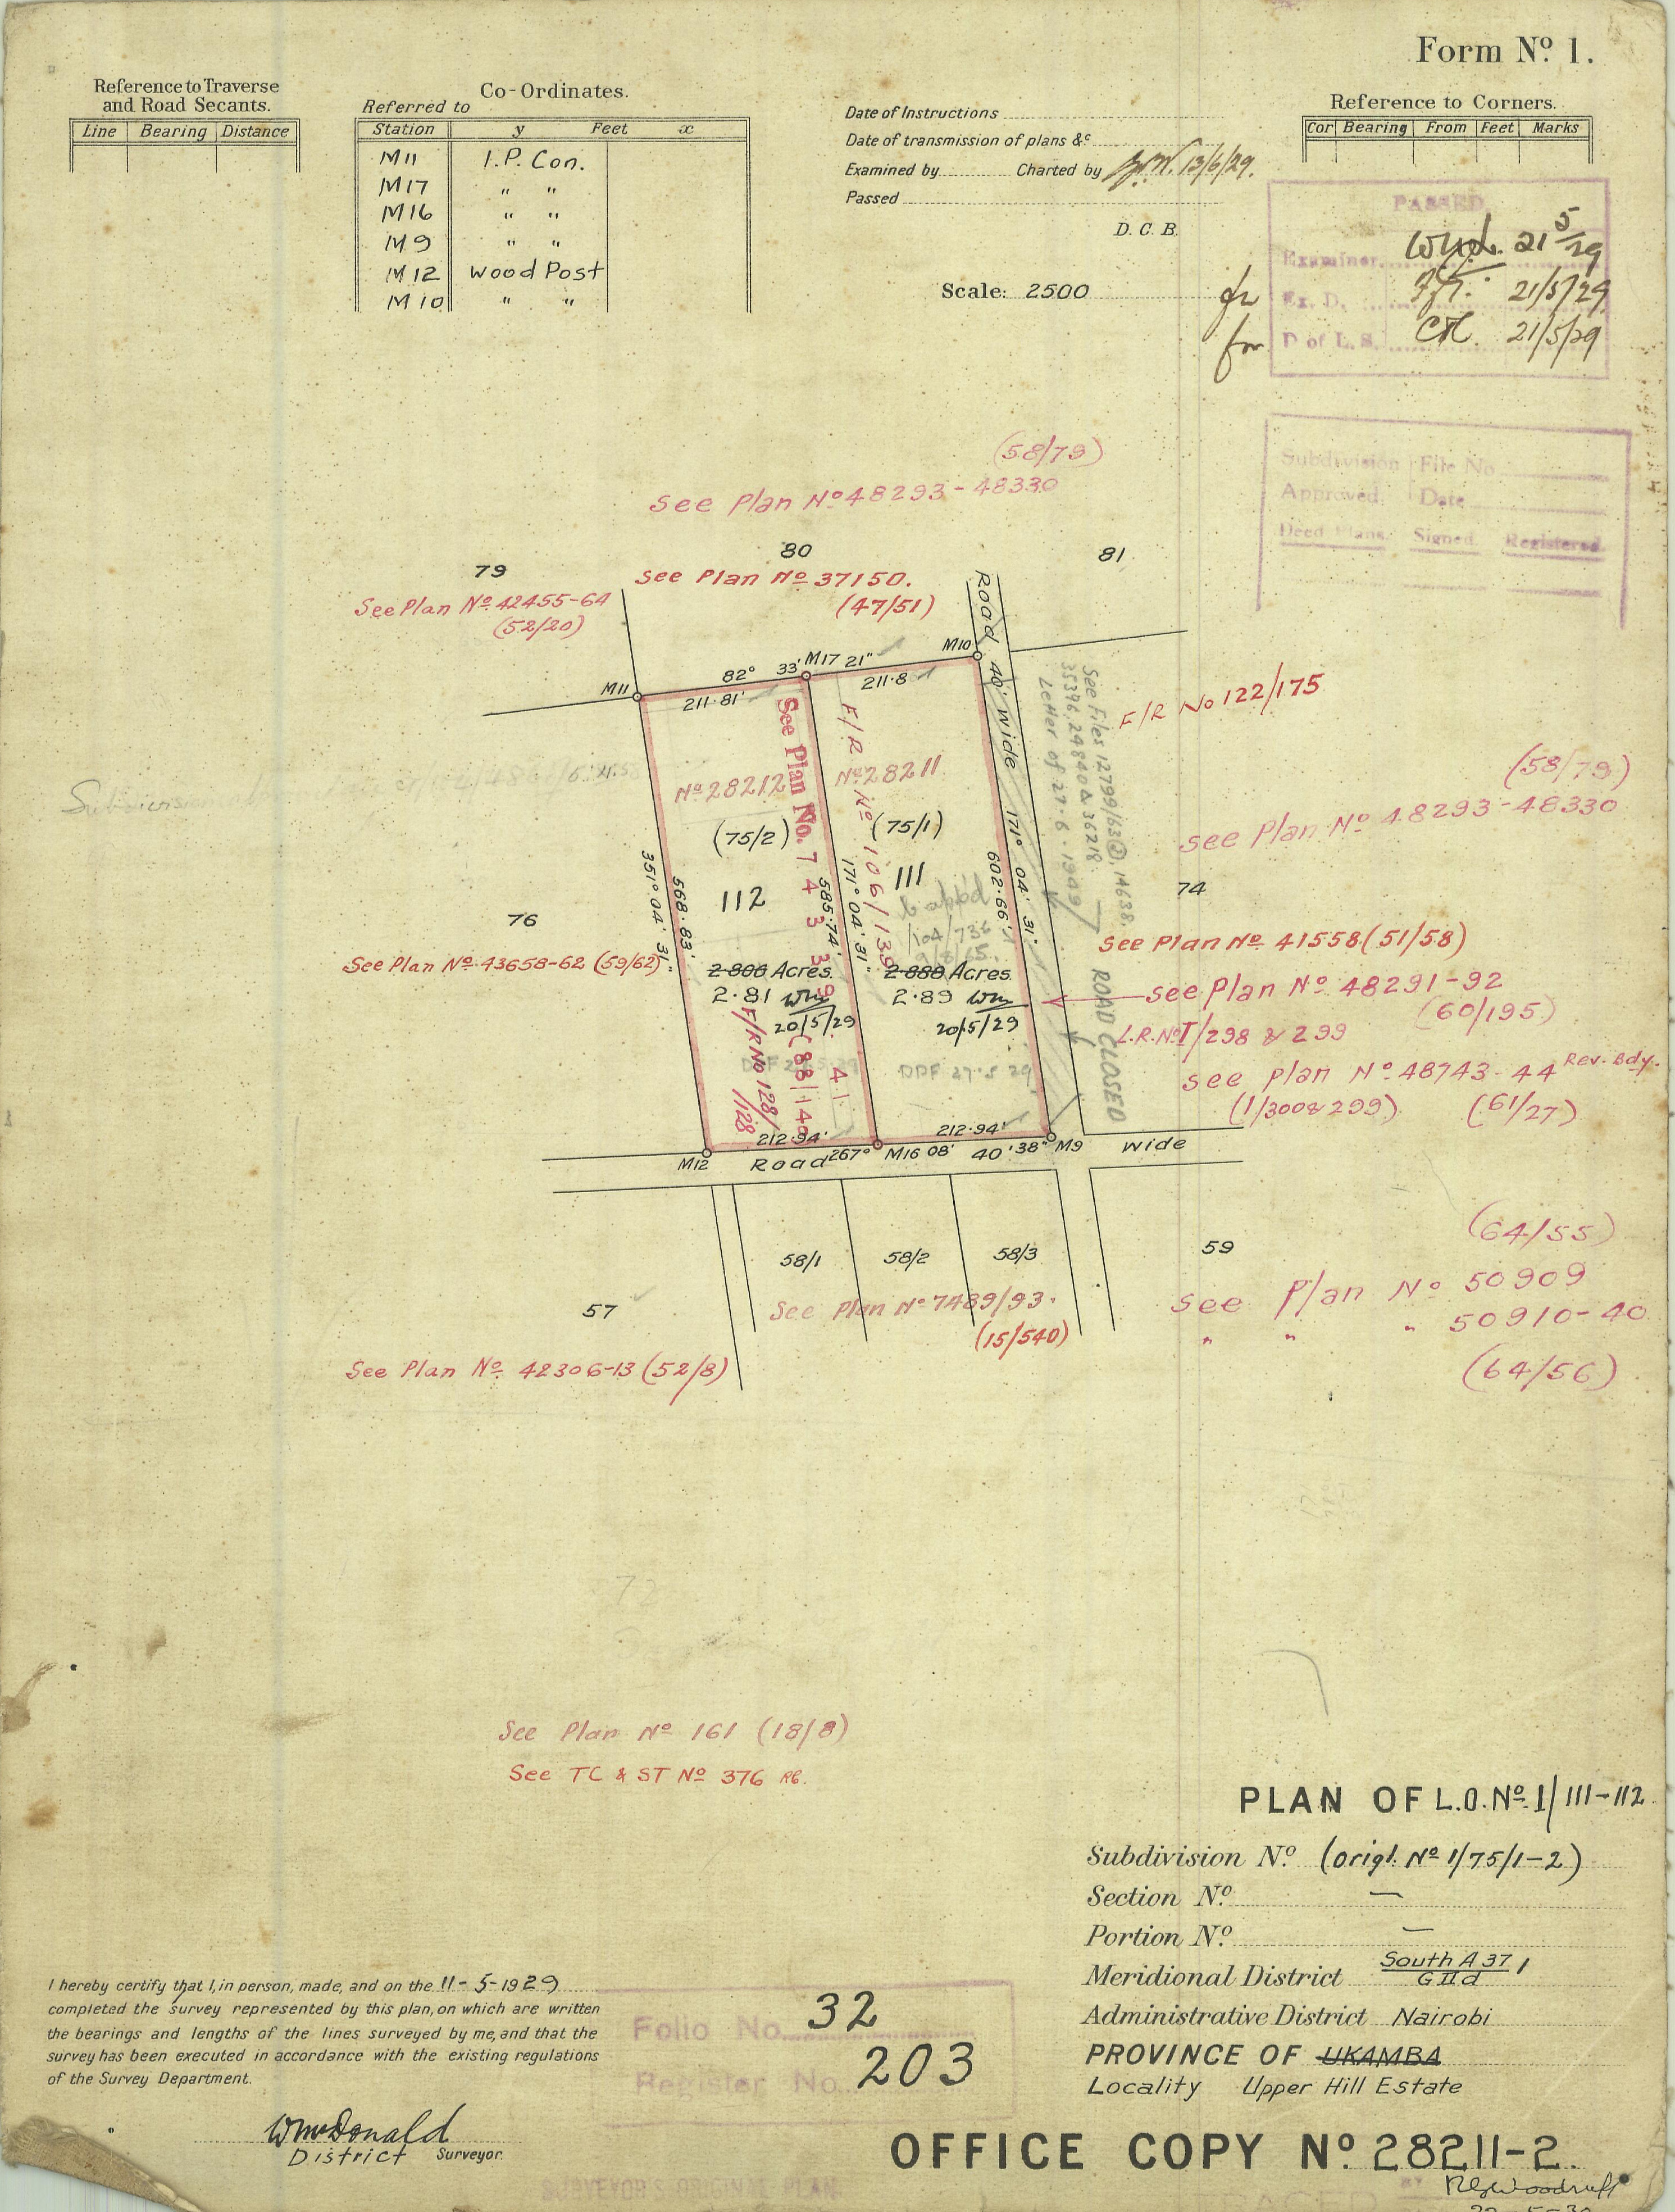 Form Nº 1.
Reference to Traverse
and Road Secants.
Line Bearing Distance
Co-Ordinates.
Referred to
Station y Feet x
M11 I.P. Con.
M17 " "
M16 " "
M9 " "
M12 Wood Post
M10 " "
Date of Instructions
Date of transmission of plans &c
Examined by Charted by 13/6/29.
Passed
D. C. B.
Scale: 2500
Reference to Corners.
Cor Bearing From Feet Marks
PASSED
Examiner. 21 5/29
for Ex. D. 21/5/29
for D of L. S. 21/5/29
Subdivision File No
Approved. Date
Deed Plans. Signed. Registered.
(58/79)
See Plan Nº 48293-48330
79
See Plan Nº 42455-64
(52/20)
80
See Plan Nº 37150.
(47/51)
81
Road 40' Wide
M11 82° 33' M17 21" M10
211.81' 211.8
F/R No 122/175
See Files 12799/63 14638,
35396, 24840 & 36218.
Letter of 27.6.1949
ROAD CLOSED
(58/79)
See Plan Nº 48293-48330
74
Nº 28212
(75/2)
112
2.806 Acres
2.81 Wm
20/5/29
See Plan No. 74339-41
(88/149
F/R No 128/
1128
Nº 28211
(75/1)
111
F/R Nº 106/139
b appd
2.888 Acres
2.89 Wm
20/5/29
DPF 27.5.29
351° 04' 31"
568.83'
585.74'
171° 04' 31"
602.66'
171° 04' 31"
76
See Plan Nº 43658-62 (59/62)
See Plan Nº 41558 (51/58)
See Plan Nº 48291-92
(60/195)
L.R. Nº I/298 & 299
See Plan Nº 48743-44 Rev. Bdy.
(1/300 & 299) (61/27)
212.94' 212.94'
M12 Road 267° M16 08' 40' 38" M9 Wide
58/1 58/2 58/3
59
57
See Plan Nº 7489/93.
(15/540)
(64/55)
See Plan Nº 50909
" " " 50910-40
(64/56)
See Plan Nº 42306-13 (52/8)
See Plan Nº 161 (18/8)
See TC & ST Nº 376 RG.
PLAN OF L.O. Nº 1/111-112
Subdivision Nº (Origl. Nº 1/75/1-2)
Section Nº —
Portion Nº —
Meridional District South A 37 / G II d 1
Administrative District Nairobi
PROVINCE OF UKAMBA
Locality Upper Hill Estate
OFFICE COPY Nº 28211-2.
I hereby certify that I, in person, made, and on the 11-5-1929
completed the survey represented by this plan, on which are written
the bearings and lengths of the lines surveyed by me, and that the
survey has been executed in accordance with the existing regulations
of the Survey Department.
WmcDonald
District Surveyor.
Folio No. 32
Register No. 203
SURVEYOR'S ORIGINAL PLAN
RGWoodruff